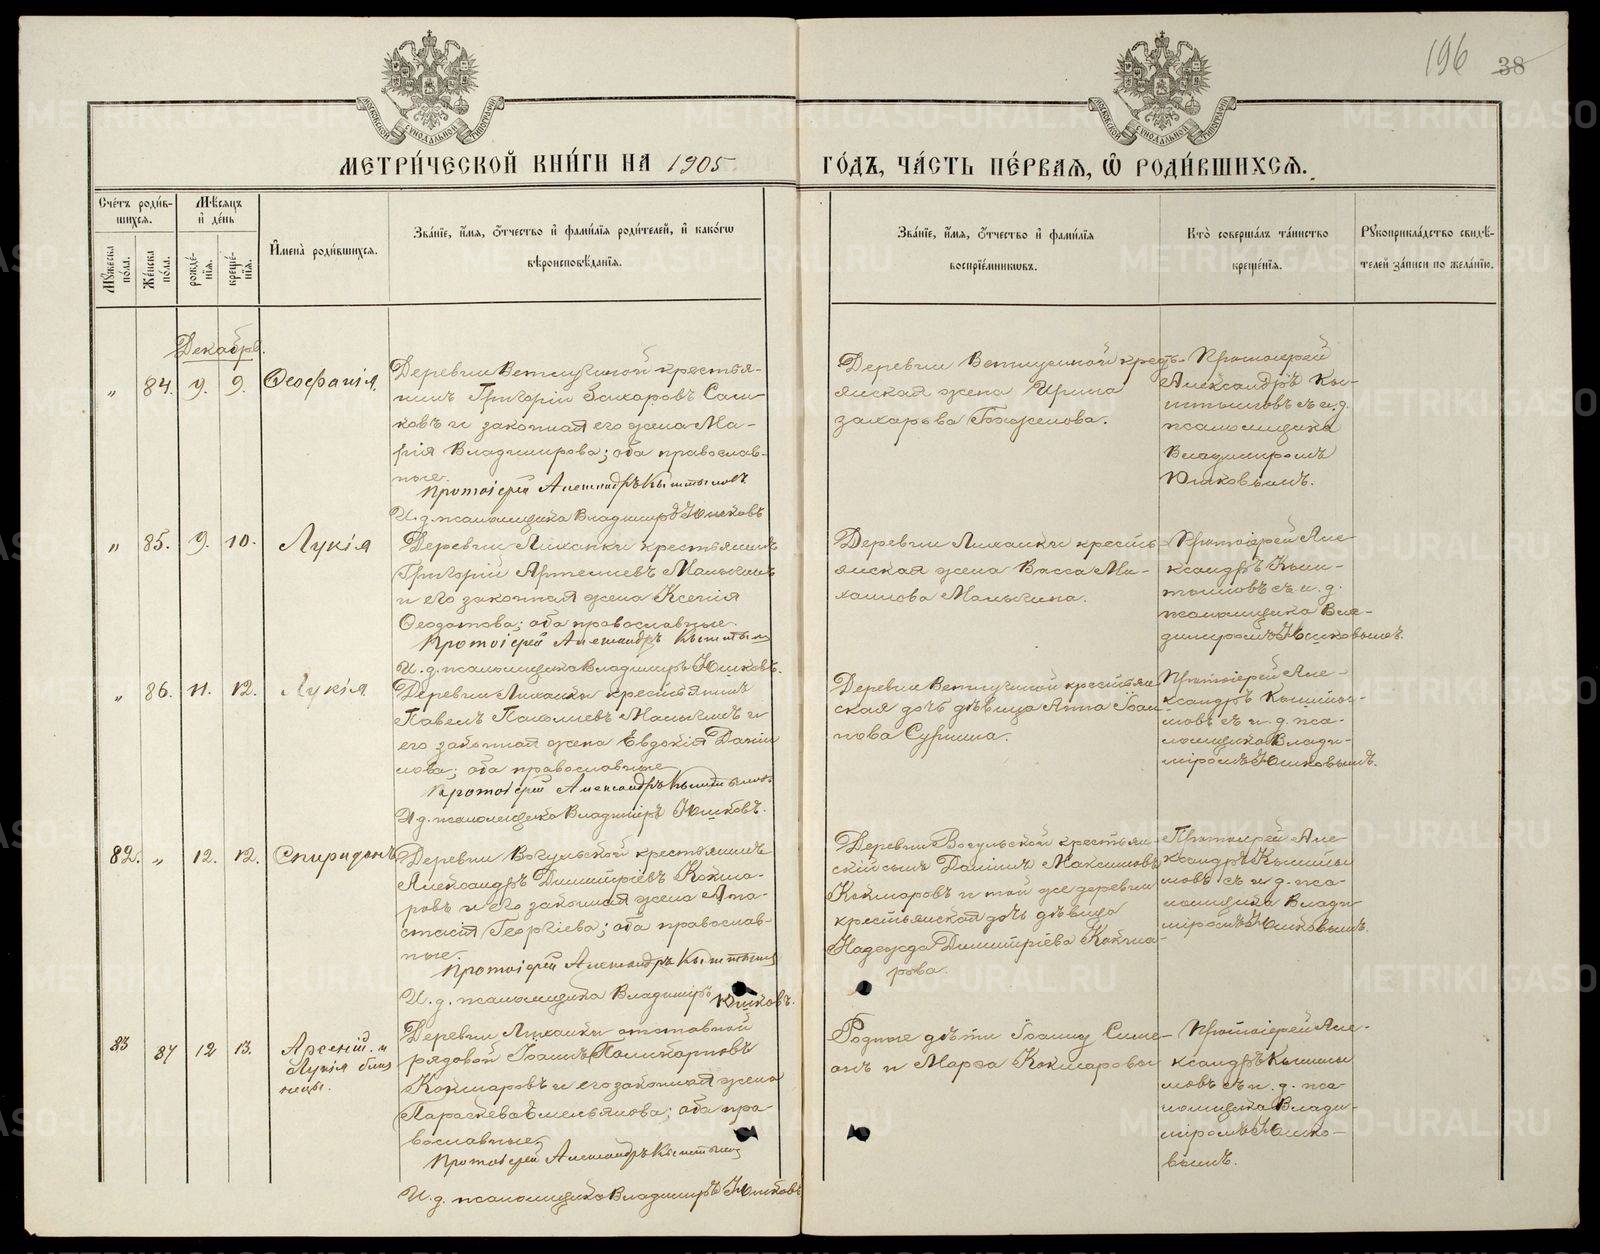 196 38
МЕТРИ́ЧЕСКОЙ КНИ́ГИ НА 1905
ГО́ДЪ, ЧА́СТЬ ПЕ́РВАѦ, Ѡ҆ РОДИ́ВШИХСѦ.
Сче́тъ роди́в-
шихсѧ.
Мѣ́сѧцъ
и҆ де́нь
Мꙋ́жеска по́ла.
Же́нска по́ла.
рожде́-
нїѧ.
креще́-
нїѧ.
И҆мена̀ роди́вшихсѧ.
Зва́нїе, и҆́мѧ, ѻ҆́тчество и҆ фами́лїѧ роди́телей, и҆ како́гѡ
вѣроисповѣ́данїѧ.
Зва́нїе, и҆́мѧ, ѻ҆́тчество и҆ фами́лїѧ
воспрїе́мникѡвъ.
Кто̀ соверша́лъ та́инство
креще́нїѧ.
Рꙋкоприкла́дство свидѣ́-
телей за́писи по жела́нїю.
Декабрь.
„ 84. 9. 9. Ѳеофанія.
Деревни Ветлугиной крестья-
нинъ Григорій Захаровъ Сош-
ковъ и законная его жена Ма-
рія Владимирова; оба православ-
ные.
Протоіерей Александръ Кыштымовъ
И. д. псаломщика Владиміръ Юшковъ
Деревни Ветлугиной кресть-
янская жена Ирина
Захарова
Протоіерей
Александръ Кы-
штымовъ съ и. д.
псаломщика
Владиміромъ
Юшковымъ.
„ 85. 9. 10. Лукія
Деревни крестьянинъ
Григорій Артемиевъ Малыгинъ
и его законная жена Ксенія
Ѳеодотова; оба православные.
Протоіерей Александръ Кыштымовъ
И. д. псаломщика Владиміръ Юшковъ.
Деревни кресть-
янская жена Васса Ми-
хаилова Малыгина.
Протоіерей Але-
ксандръ Кыш-
тымовъ съ и. д.
псаломщика Вла-
диміромъ Юшковымъ.
„ 86. 11. 12. Лукія
Деревни крестьянинъ
Павелъ Малыгинъ и
его законная жена Евдокія Дании-
лова; оба православные
Протоіерей Александръ Кыштымовъ
И. д. псаломщика Владиміръ Юшковъ.
Деревни Ветлугиной крестьян-
ская дочь дѣвица Анна Іоан-
нова
Протоіерей Але-
ксандръ Кышты-
мовъ съ и. д. пса-
ломщика Влади-
міромъ Юшковымъ.
82. „ 12. 12. Спиридонъ
Деревни Вогульской крестьянинъ
Александръ Димитріевъ Кокша-
ровъ и его законная жена Ана-
стасія Георгіева; оба православ-
ные.
Протоіерей Александръ Кыштымовъ
И. д. псаломщика Владиміръ Юшковъ.
Деревни Вогульской крестьян-
скій сынъ Даніилъ Максимовъ
Кокшаровъ и той же деревни
крестьянская дочь дѣвица
Надежда Димитріева Кокша-
рова.
Протоіерей Але-
ксандръ Кышты-
мовъ съ и. д. пса-
ломщика Влади-
міромъ Юшковымъ.
83 87 12 13. Арсеній и
Лукія близ-
нецы.
Деревни отставной
рядовой Іоаннъ Поликарповъ
Кокшаровъ и его законная жена
Параскева Емельянова; оба пра-
вославные.
Протоіерей Александръ Кыштымовъ
И. д. псаломщика Владиміръ Юшковъ
Родные дѣти Іоанну Симе-
онъ и Марѳа Кокшаровы
Протоіерей Але-
ксандръ Кышты-
мовъ съ и. д. пса-
ломщика Влади-
міромъ Юшко-
вымъ.
METRIKI.GASO-URAL.RU